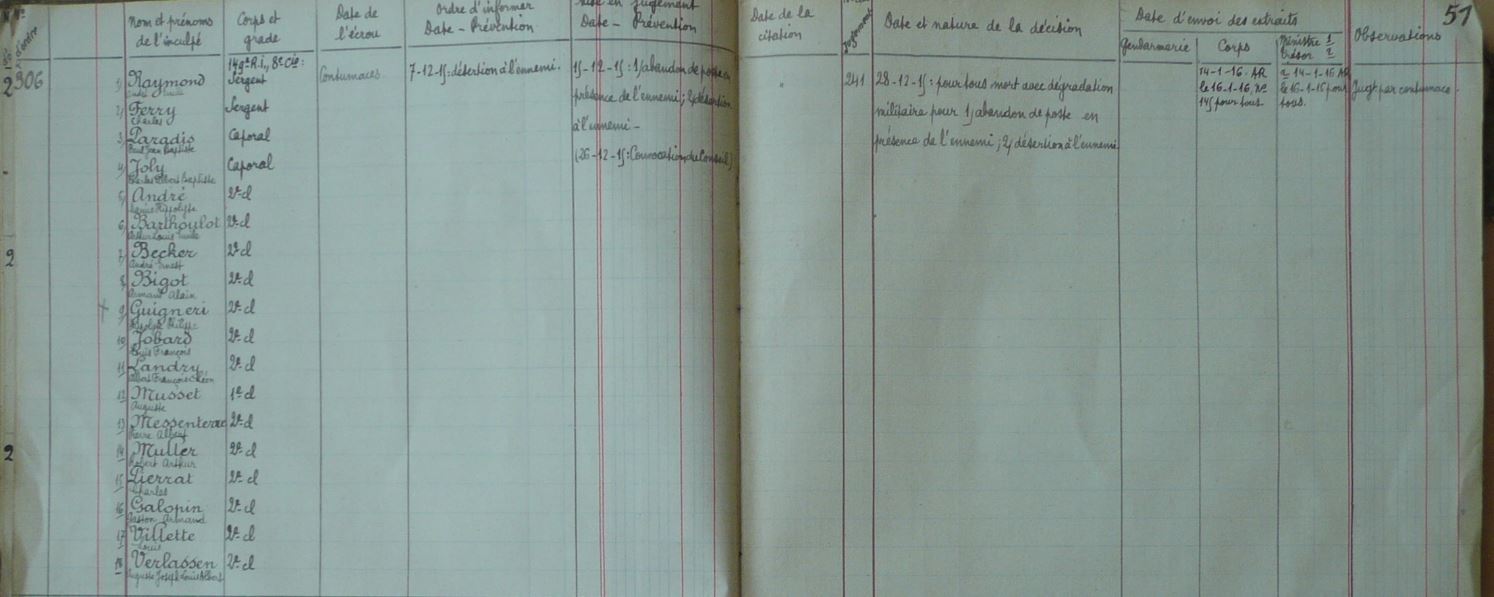 Nom et prénoms
de l'inculpé
Corps et
grade
Date de
l'écrou
Ordre d'informer
Date - Prévention
Mise en jugement
Date - Prévention
Date de la
citation
Date et nature de la décision
Date d'envoi des extraits
Gendarmerie
Corps
Observations
51
N°
d'ordre
149e R.I., 8e Cie:
306
1) Raymond Sergent
Contumaces
7-12-15: désertion à l'ennemi.
15-12-15: 1) abandon de poste en
présence de l'ennemi; 2) désertion
à l'ennemi -
(26-12-15: Convocation du Conseil)
241
28-12-15: pour tous mort avec dégradation
militaire pour 1) abandon de poste en
présence de l'ennemi; 2) désertion à l'ennemi
14-1-16 AR
le 16-1-16, No
145 pour tous
14-1-16 AR
le 16-1-16 pour
tous.
Jugt par contumace
2) Ferry Sergent
Charles
3) Paradis Caporal
Paul Jean Baptiste
4) Joly Caporal
Charles Albert Baptiste
5) André 2e cl
Louis Hippolyte
6) Barthoulot 2e cl
Arthur Louis
2
7) Becker 2e cl
André Ernest
8) Bigot 2e cl
Armand Alain
9) Guigneri 2e cl
Philippe
10) Jobard 2e cl
Louis François
11) Landry 2e cl
Albert François Léon
12) Musset 1e cl
Auguste
13) 2e cl
Pierre Albert
2
14) Muller 2e cl
Robert Arthur
15) Pierrat 2e cl
Charles
16) Galopin 2e cl
Gaston Armand
17) Villette 2e cl
Louis
18) Verlassen 2e cl
Auguste Joseph Louis Albert